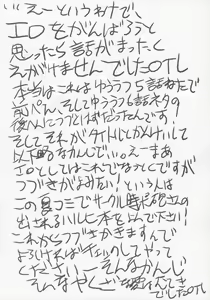 …えーというわけで、
エロをがんばろうと
思ったら話がまったく
えがけませんでしたOTL
本当はこれはゆううつ5話ネタで
前ぺん、そしてゆううつ6話ネタの
後へんにつづくはずだったんです!
そしてそれがタイトルにかけていて
以下略なかんじで…。えーまあ
エロとしてはこれでなっとくですが
つづきがよみたい!という人は
この夏コミでサークル時
出されるハルヒ本を よんで下さい!
これからつづきかきますんで
よろければチェックしてやって
くださいーそんなかんじ
そんなやくざな
でしたOTL